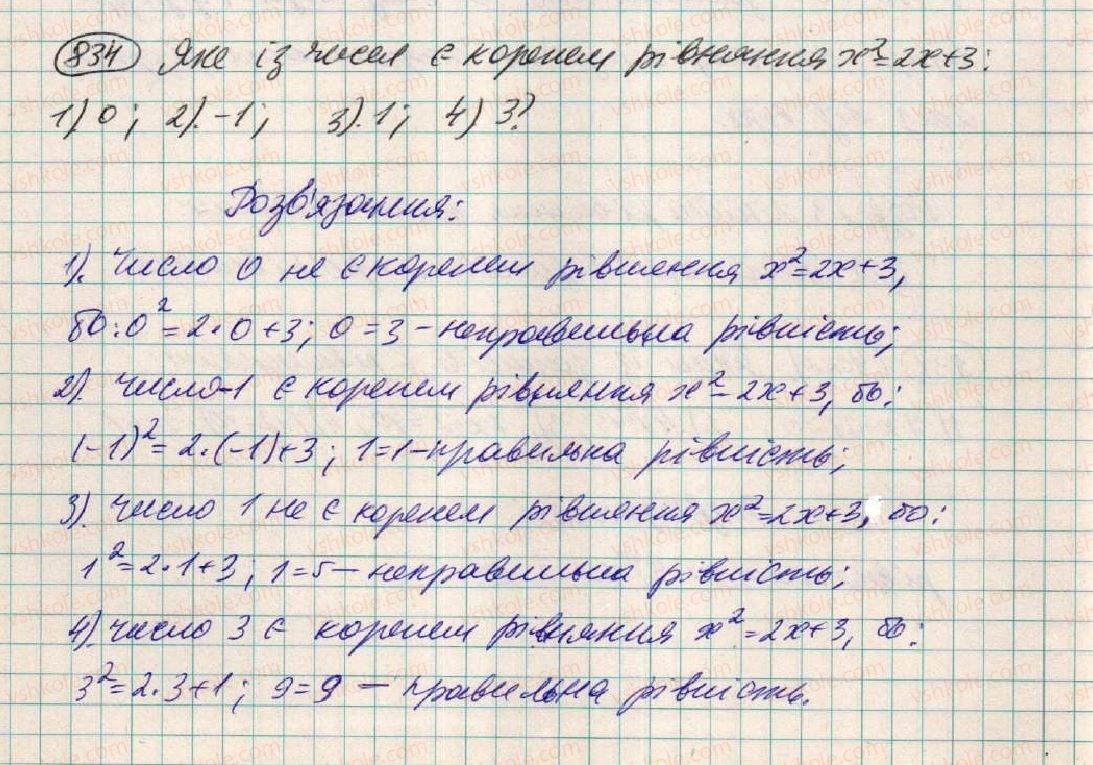 834 Яке із чисел є коренем рівняння x²=2x+3:
1) 0; 2) -1; 3) 1; 4) 3?
Розв'язання:
1). Число 0 не є коренем рівняння x²=2x+3,
бо: 0²=2·0+3; 0=3 - неправильна рівність;
2). число -1 є коренем рівняння x²=2x+3, бо:
(-1)²=2·(-1)+3; 1=1 - правильна рівність;
3) число 1 не є коренем рівняння x²=2x+3, бо:
1²=2·1+3; 1=5 - неправильна рівність;
4) число 3 є коренем рівняння x²=2x+3, бо:
3²=2·3+1; 9=9 - правильна рівність.